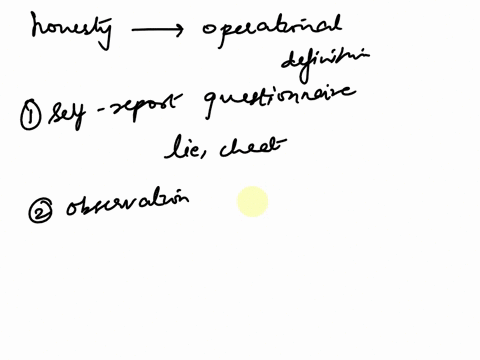 honesty → operational
definition
① self-report questionnaire
lie, cheat
② observation